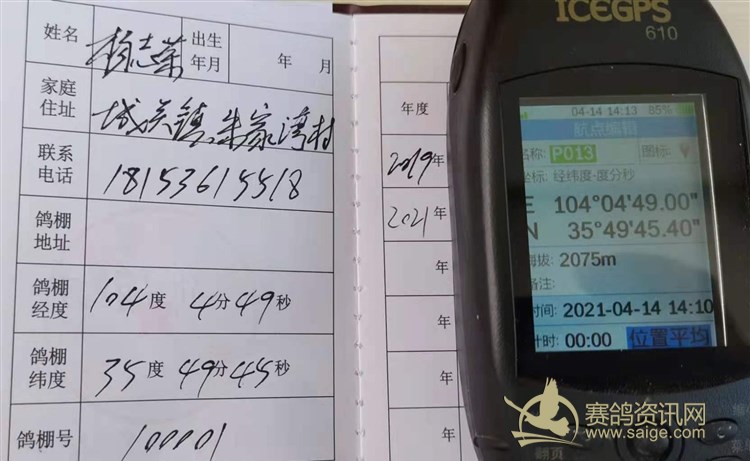 姓名 杨志荣 出生年月 年 月
家庭住址 城关镇朱家湾村
联系电话 18153615518
鸽棚地址
鸽棚经度 104度 4分49秒
鸽棚纬度 35度 49分45秒
鸽棚号 100001
年度
2019年
2021年
年
年
年
年
ICEGPS
610
04-14 14:13 85%
航点编辑
名称: P013 图标:
坐标: 经纬度-度分秒
E 104°04'49.00"
N 35°49'45.40"
海拔: 2075m
备注:
时间: 2021-04-14 14:10
计时: 00:00 位置平均
翻页
赛鸽资讯网
www.saige.com